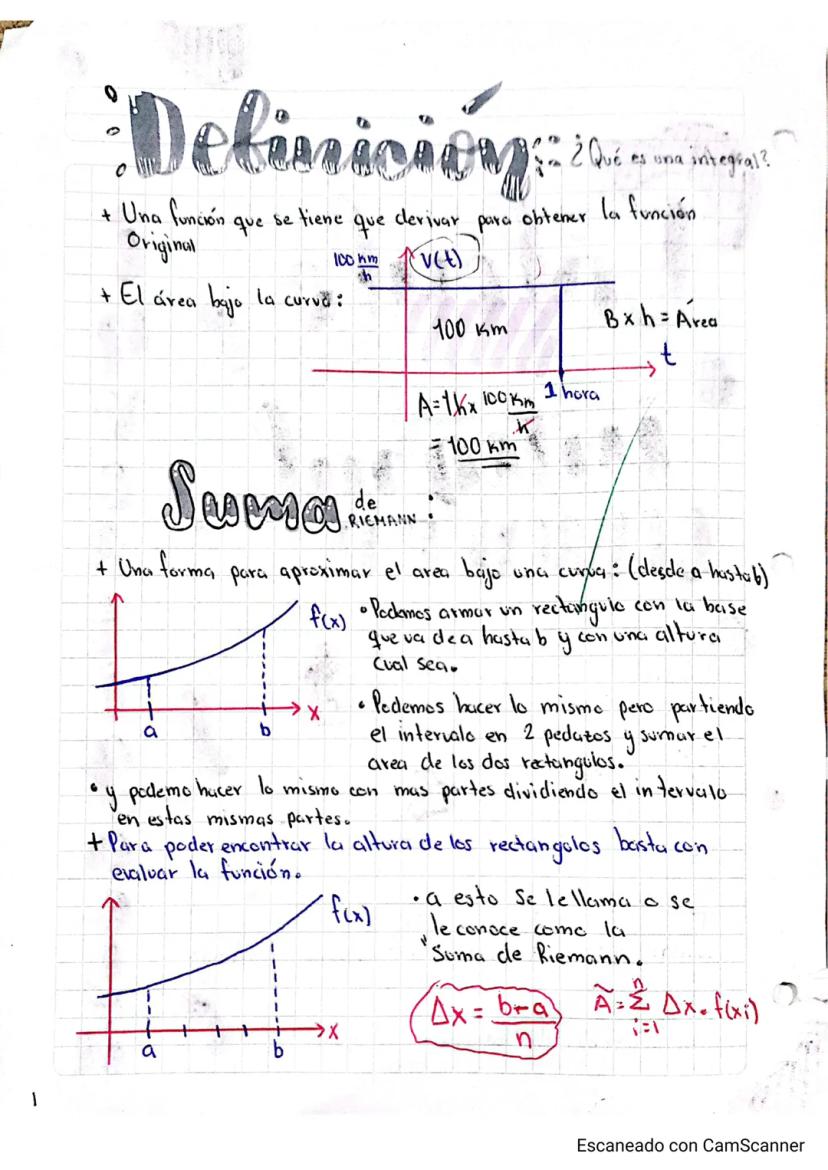 Definición: ¿Qué es una integral?
+ Una función que se tiene que derivar para obtener la función
Original
100 Km/h
V(t)
+ El área bajo la curva:
100 Km
B x h = Área
t
1 hora
A=1h x 100 Km/h
= 100 Km
Suma de RIEMANN:
+ Una forma para aproximar el area bajo una curva: (desde a hasta b)
f(x)
• Podemos armar un rectangulo con la base
que va de a hasta b y con una altura
cual sea.
x
a
b
• Podemos hacer lo mismo pero partiendo
el intervalo en 2 pedazos y sumar el
area de los dos rectangulos.
• y podemo hacer lo mismo con mas partes dividiendo el intervalo
en estas mismas partes.
+ Para poder encontrar la altura de los rectangolos basta con
evaluar la función.
f(x)
• a esto se le llama o se
le conoce como la
"Suma de Riemann.
x
a
b
Δx = b-a/n
Ã = n Σ i=1 Δx . f(xi)
1
Escaneado con CamScanner